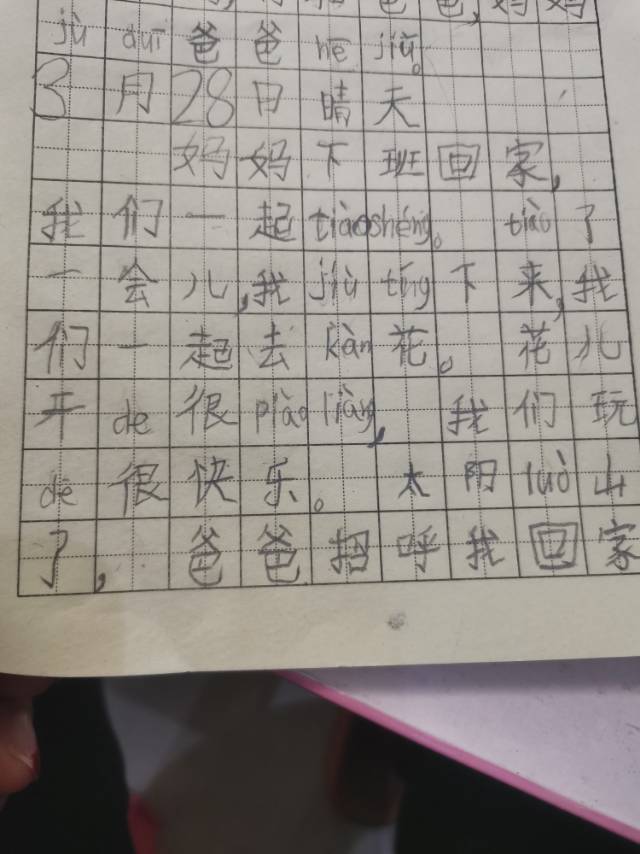 爸爸,妈妈
jù duī爸爸hē jiǔ。
3月28日晴天
妈妈下班回家,
我们一起tiàoshéng。tiào了
一会儿,我jiù tíng下来,我
们一起去kàn花。花儿
开de很piàoliàng,我们玩
dē很快乐。太阳luò山
了,爸爸招呼我回家